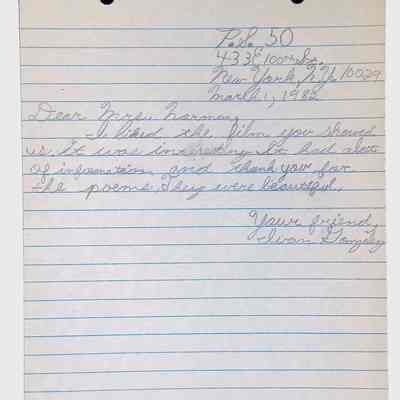 P.S. 50
433 E 100th St.
New York, N.Y. 10029
March 1, 1982
Dear Mrs. Norman,
I liked the film you showed
us. It was interesting. It had a lot
of information and thank you for
the poems. They were beautiful.
Your friend,
Ivan Gonzalez